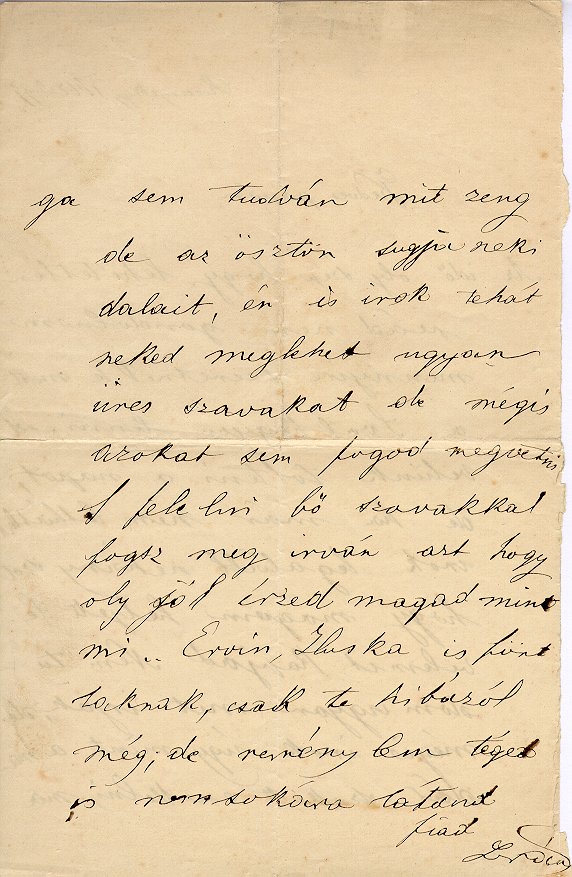 ga sem tudván mit zeng
de az ösztön sugja neki
dalait, én is irok tehát
neked meglehet ugyan
üres szavakat de mégis
azokat sem fogod megvetni
S bő szavakkal
fogsz meg irván azt hogy
oly jól érzed magad mint
mi. Ervin, Iluska is fönt
laknak, csak te hibázól
még; de reménylem téged
is nemsokára látand
fiad